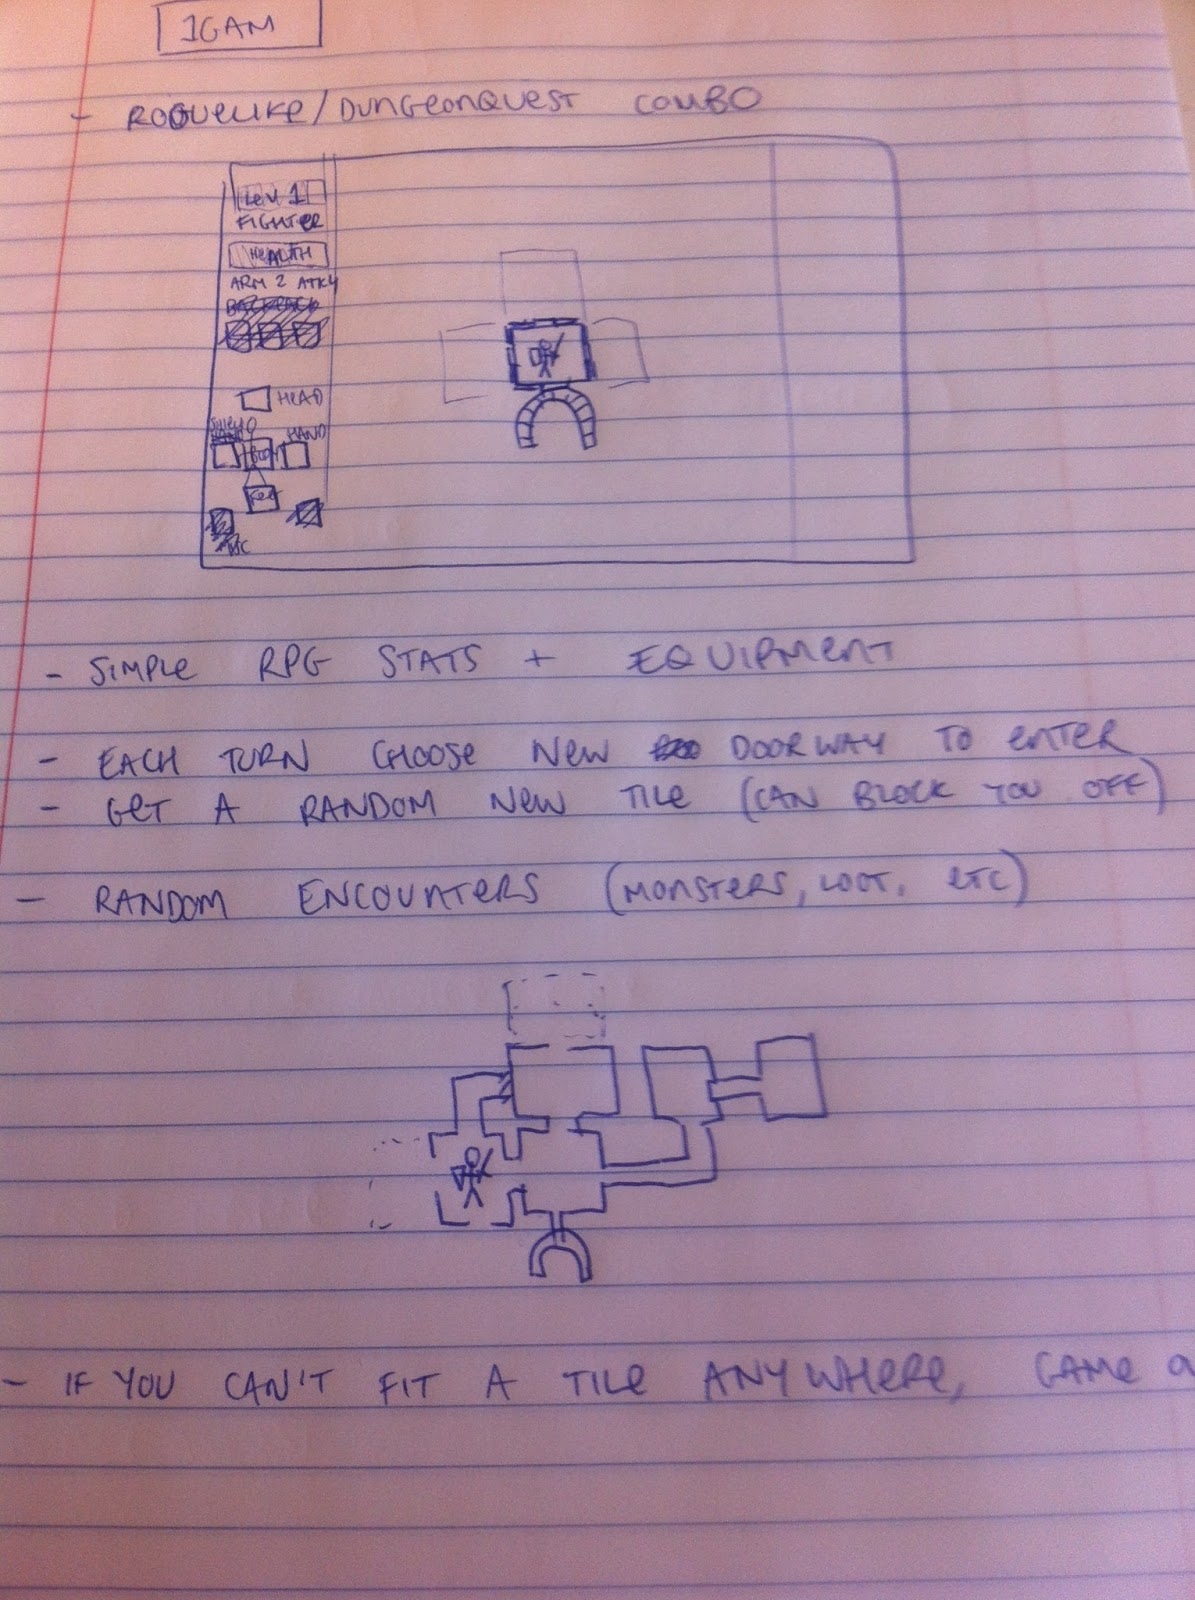 1GAM
- ROGUELIKE/DUNGEONQUEST COMBO
Lev 1
FIGHTER
HEALTH
ARM 2 ATK4
BACKPACK
HEAD
HAND
BODY
FEET
- SIMPLE RPG STATS + EQUIPMENT
- EACH TURN CHOOSE NEW DOORWAY TO ENTER
- GET A RANDOM NEW TILE (CAN BLOCK YOU OFF)
- RANDOM ENCOUNTERS (MONSTERS, LOOT, ETC)
- IF YOU CAN'T FIT A TILE ANYWHERE, GAME